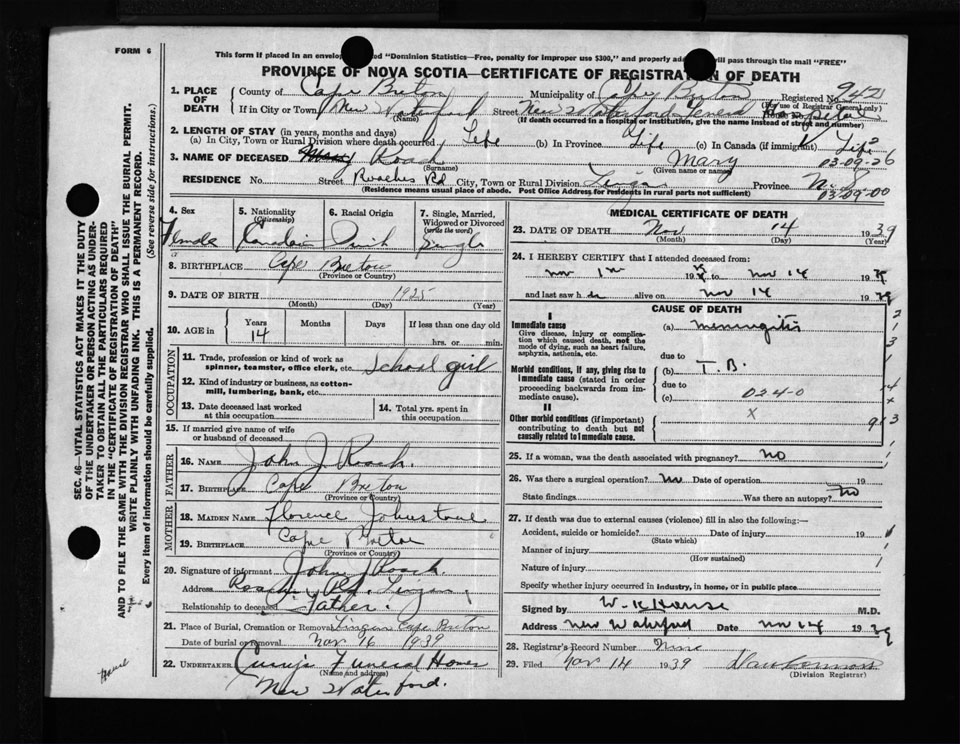 FORM 6
This form if placed in an envelop ed "Dominion Statistics—Free, penalty for improper use $300," and properly ad will pass through the mail "FREE"
PROVINCE OF NOVA SCOTIA—CERTIFICATE OF REGISTRATION OF DEATH
1. PLACE OF DEATH County of Cape Breton Municipality of Cape Breton Registered No. 942
(For use of Registrar General only)
If in City or Town New Waterford Street New Waterford General Hospital
(Name) (If death occurred in a hospital or institution, give the name instead of street and number)
2. LENGTH OF STAY (in years, months and days)
(a) In City, Town or Rural Division where death occurred Life (b) In Province Life (c) In Canada (if immigrant) Life
3. NAME OF DECEASED Mary Roach Mary
(Surname) (Given name or names)
03-09-26
RESIDENCE No. Street Roaches Rd City, Town or Rural Division Lingan Province N.S.
(Residence means usual place of abode. Post Office Address for residents in rural parts not sufficient)
03-09-00
4. Sex Female
5. Nationality (Citizenship) Canadian
6. Racial Origin Irish
7. Single, Married, Widowed or Divorced (write the word) Single
8. BIRTHPLACE Cape Breton
(Province or Country)
9. DATE OF BIRTH 1925
(Month) (Day) (Year)
10. AGE in Years Months Days If less than one day old
14 hrs. or min.
OCCUPATION
11. Trade, profession or kind of work as spinner, teamster, office clerk, etc. School girl
12. Kind of industry or business, as cotton-mill, lumbering, bank, etc.
13. Date deceased last worked at this occupation
14. Total yrs. spent in this occupation
15. If married give name of wife or husband of deceased
FATHER
16. NAME John J Roach
17. BIRTHPLACE Cape Breton
(Province or Country)
MOTHER
18. MAIDEN NAME Florence Johnstone
19. BIRTHPLACE Cape Breton
(Province or Country)
20. Signature of informant John J Roach
Address Roaches Rd. Lingan
Relationship to deceased Father.
21. Place of Burial, Cremation or Removal Lingan Cape Breton
Date of burial or removal Nov 16 1939
22. UNDERTAKER Curry's Funeral Home
(Name and address)
New Waterford.
MEDICAL CERTIFICATE OF DEATH
23. DATE OF DEATH Nov 14 1939
(Month) (Day) (Year)
24. I HEREBY CERTIFY that I attended deceased from:
Nov 1st 1939 to Nov 14 1939
and last saw her alive on Nov 14 1939
CAUSE OF DEATH
I
Immediate cause
Give disease, injury or complication which caused death, not the mode of dying, such as heart failure, asphyxia, asthenia, etc.
(a) meningitis
due to
Morbid conditions, if any, giving rise to immediate cause (stated in order proceeding backwards from immediate cause).
(b) T.B.
due to
(c) 034-0
II
Other morbid conditions (if important) contributing to death but not causally related to immediate cause.
X
25. If a woman, was the death associated with pregnancy? no
26. Was there a surgical operation? No Date of operation 19
State findings Was there an autopsy? No
27. If death was due to external causes (violence) fill in also the following:—
Accident, suicide or homicide? Date of injury 19
(State which)
Manner of injury
(How sustained)
Nature of injury
Specify whether injury occurred in industry, in home, or in public place
Signed by W. K House M.D.
Address New Waterford Date Nov 14 1939
28. Registrar's Record Number Nine
29. Filed Nov 14 1939
(Division Registrar)
SEC. 46—VITAL STATISTICS ACT MAKES IT THE DUTY
OF THE UNDERTAKER OR PERSON ACTING AS UNDER-
TAKER TO OBTAIN ALL THE PARTICULARS REQUIRED
IN THE "CERTIFICATE OF REGISTRATION OF DEATH"
AND TO FILE THE SAME WITH THE DIVISION REGISTRAR WHO SHALL ISSUE THE BURIAL PERMIT.
WRITE PLAINLY WITH UNFADING INK. THIS IS A PERMANENT RECORD.
Every item of information should be carefully supplied. (See reverse side for instructions.)